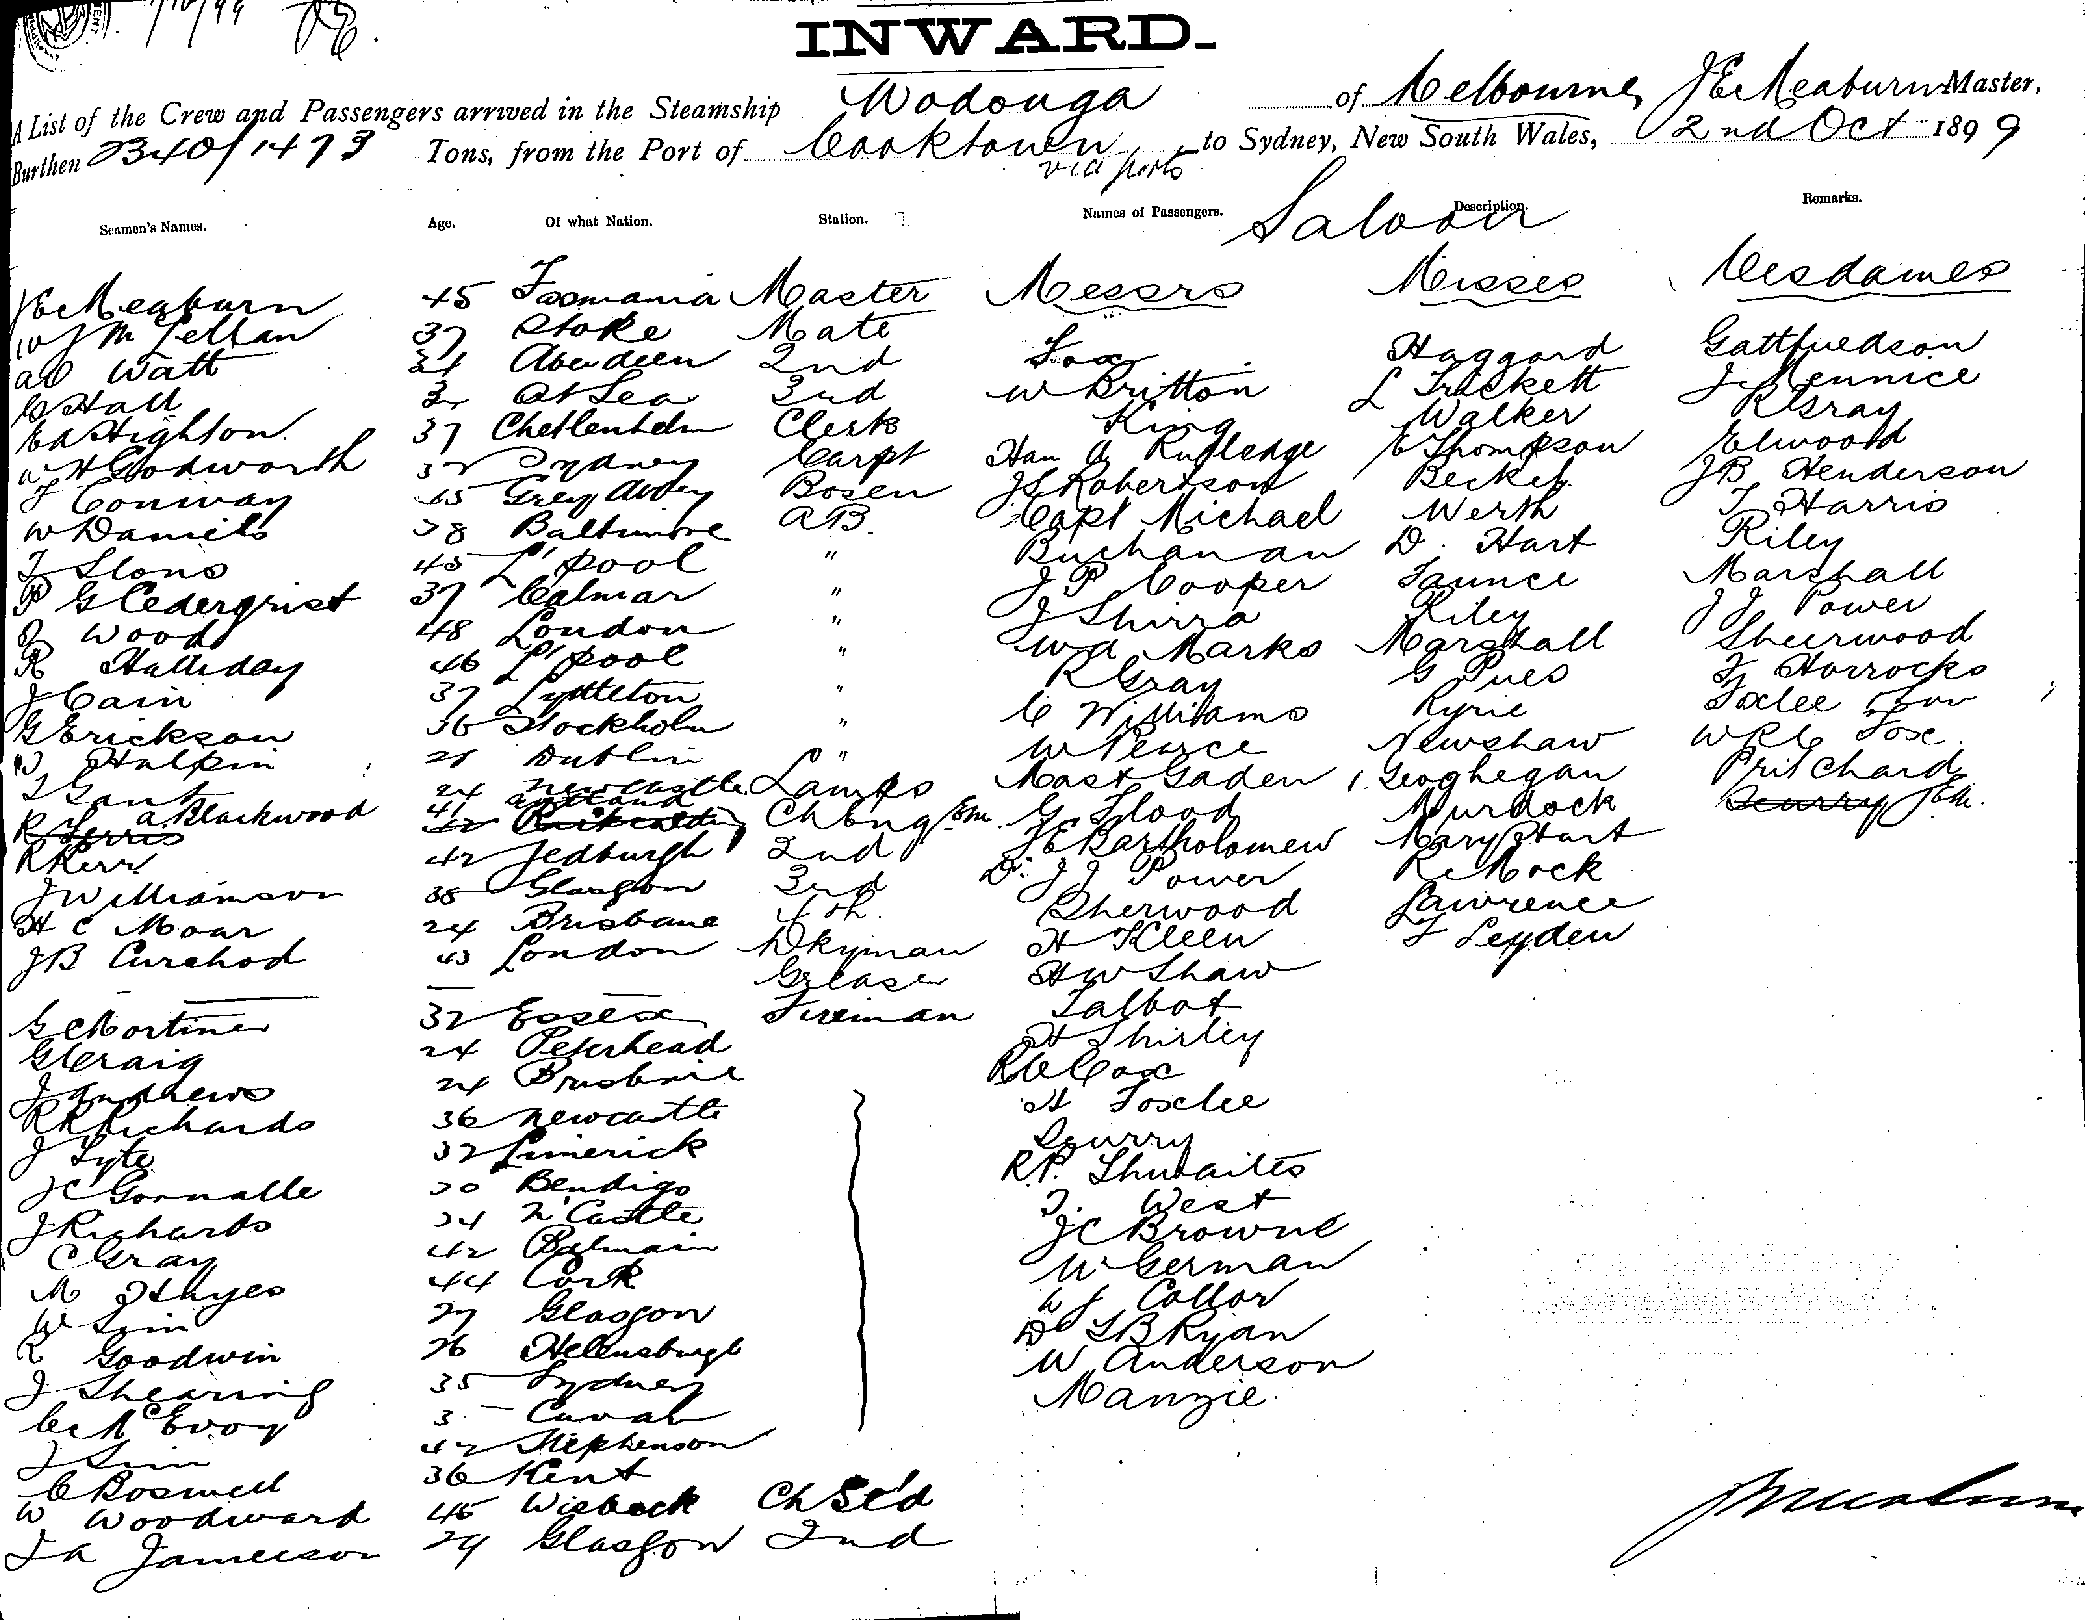 7/10/99
INWARD.
A List of the Crew and Passengers arrived in the Steamship Wodonga of Melbourne, J E Meaburn Master,
Burthen 2340/1473 Tons, from the Port of Cooktown via ports to Sydney, New South Wales, 2nd Oct 1899
Seamen's Names. Age. Of what Nation. Station. Names of Passengers. Description. Remarks.
Saloon
J E Meaburn 45 Tasmania Master Messrs Misses Mesdames
W J McLellan 37 Stoke Mate
Watt Aberdeen 2nd Fox Haggard Gattfuedson
G Hall At Sea 3rd W Britton L Trickett J Mennice
Highton 37 Cheltenhelm Clerk King Walker R Gray
Sydney Carpt Rutledge E Thompson Elwood
J Conway 45 Grey Abbey Bosen J S Robertson Becket J B Henderson
W Daniels 38 Baltimore AB. Capt Michael Werth T Harris
45 L'pool " Buchanan D. Hart Riley
P G Cedergrist 37 Calmar " J P Cooper Faunce Marshall
Wood 48 London " J Shirra Riley J J Power
R Halliday 46 L'pool " W A Marks Marshall Sheerwood
J Cain 37 Lyttleton " R Gray G Pues T Horrocks
G Erickson 36 Stockholm " C Williams Kyrie Foxlee
Halpin Dublin " W Pearce Newshaw W R C Fox
Gant 24 Newcastle Lamps Mast Gaden Geoghegan Pritchard
A Blackwood 41 Ch Eng G Flood Murdock Scurry
R Kerr 42 Jedburgh 2nd J E Bartholomew Mary Hart
J Williamson 38 Glasgow 3rd Dr J J Power R Mock
H C Moar 24 Brisbane 4th. Sherwood Lawrence
J B Curchod 43 London Dkyman H Kleen F Leyden
Greaser H W Shaw
G C Mortimer 32 Essex Fireman Talbot
G Craig 24 Peterhead H Shirley
J Andrews 24 Brisbane R W Cox
R R Richards 36 Newcastle H Foxlee
J Lyte 32 Limerick Scurry
J C Gornalle 30 Bendigo R P. Thwaites
J Richards 34 N'Castle T. West
C Gray 42 Balmain J C Browne
M Hayes 44 Cork W German
W Sim 27 Glasgow W J Collor
R Goodwin 26 Helensburgh Dr L B Ryan
J Shearing 35 Sydney W Anderson
McEvoy Cavan Manzie.
J Sim 42 Stephenson
C Boswell 36 Kent
W Woodward 45 Wisbeck Ch St'd
J A Jameeson 29 Glasgow 2nd